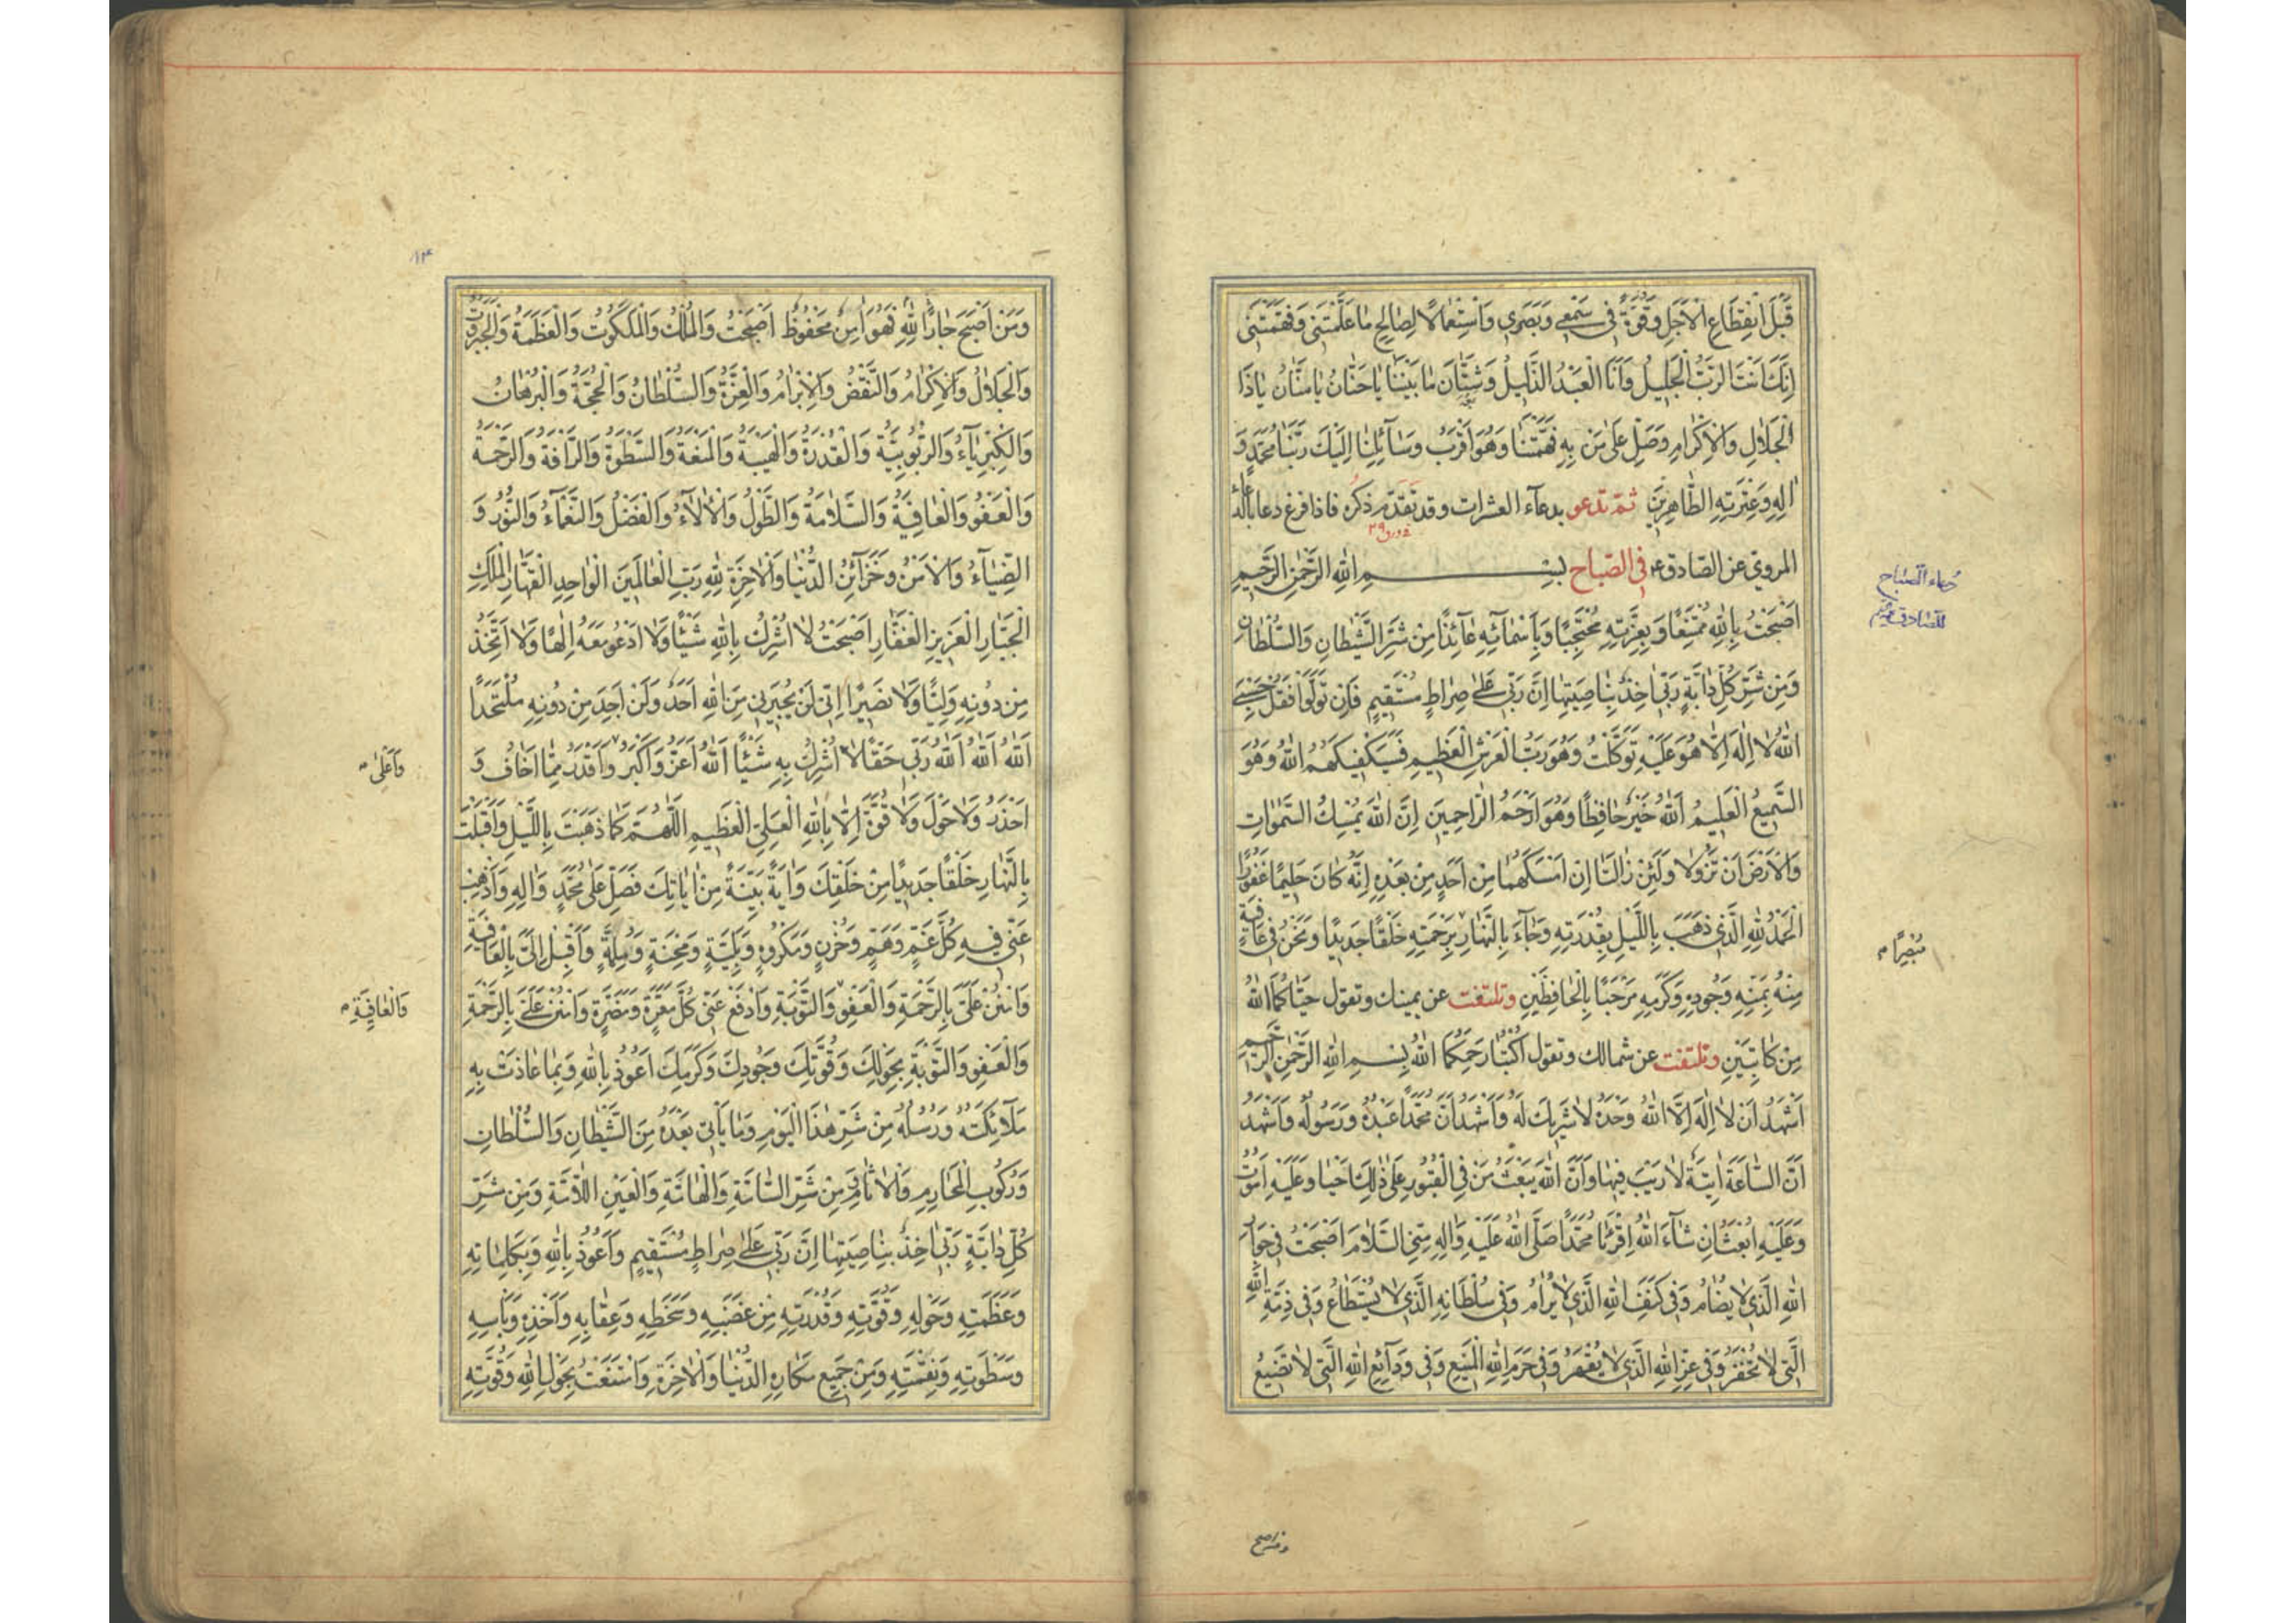 قَبْلَ انْقِطَاعِ الْأَجَلِ وَقُوَّةً فِي سَمْعِي وَبَصَرِي وَاسْتِعْمَالًا لِصَالِحِ مَا عَلَّمْتَنِي وَفَهَّمْتَنِي
إِنَّكَ أَنْتَ الرَّبُّ الْجَلِيلُ وَأَنَا الْعَبْدُ الذَّلِيلُ وَشَتَّانَ مَا بَيْنَنَا يَا حَنَّانُ يَا مَنَّانُ يَا ذَا
الْجَلَالِ وَالْإِكْرَامِ وَصَلِّ عَلَى مَنْ بِهِ فَهَّمْتَنَا وَهُوَ أَقْرَبُ وَسَائِلِنَا إِلَيْكَ رَبَّنَا مُحَمَّدٍ وَ
آلِهِ وَعِتْرَتِهِ الطَّاهِرِينَ ثم تدعو بدعآء العشرات وقد تقدم ذكره فاذا فرغ دعا بالدعاء
المروي عن الصادق ع في الصباح بِسْمِ اللهِ الرَّحْمٰنِ الرَّحِيمِ
دعاء الصباح
للصادق
أَصْبَحْتُ بِاللهِ مُمْتَنِعًا وَبِعِزَّتِهِ مُحْتَجِبًا وَبِأَسْمَائِهِ عَائِذًا مِنْ شَرِّ الشَّيْطَانِ وَالسُّلْطَانِ
وَمِنْ شَرِّ كُلِّ دَابَّةٍ رَبِّي آخِذٌ بِنَاصِيَتِهَا إِنَّ رَبِّي عَلَى صِرَاطٍ مُسْتَقِيمٍ فَإِنْ تَوَلَّوْا فَقُلْ حَسْبِيَ
اللهُ لَا إِلَهَ إِلَّا هُوَ عَلَيْهِ تَوَكَّلْتُ وَهُوَ رَبُّ الْعَرْشِ الْعَظِيمِ فَسَيَكْفِيكَهُمُ اللهُ وَهُوَ
السَّمِيعُ الْعَلِيمُ اَللهُ خَيْرٌ حَافِظًا وَهُوَ أَرْحَمُ الرَّاحِمِينَ إِنَّ اللهَ يُمْسِكُ السَّمٰوَاتِ
وَالْأَرْضَ أَنْ تَزُولَا وَلَئِنْ زَالَتَا إِنْ أَمْسَكَهُمَا مِنْ أَحَدٍ مِنْ بَعْدِهِ إِنَّهُ كَانَ حَلِيمًا غَفُورًا
الْحَمْدُ لِلّٰهِ الَّذِي ذَهَبَ بِاللَّيْلِ بِقُدْرَتِهِ وَجَاءَ بِالنَّهَارِ بِرَحْمَتِهِ خَلْقًا جَدِيدًا وَنَحْنُ فِي عَافِيَةٍ
مُبْصِرًا
مِنْهُ بِمَنِّهِ وَجُودِهِ وَكَرَمِهِ مَرْحَبًا بِالْحَافِظَيْنِ وتلتفت عن يمينك وتقول حَيَّاكُمَا اللهُ
مِنْ كَاتِبَيْنِ وتلتفت عن شمالك وتقول اُكْتُبَا رَحِمَكُمَا اللهُ بِسْمِ اللهِ الرَّحْمٰنِ الرَّحِيمِ
أَشْهَدُ أَنْ لَا إِلَهَ إِلَّا اللهُ وَحْدَهُ لَا شَرِيكَ لَهُ وَأَشْهَدُ أَنَّ مُحَمَّدًا عَبْدُهُ وَرَسُولُهُ وَأَشْهَدُ
أَنَّ السَّاعَةَ آتِيَةٌ لَا رَيْبَ فِيهَا وَأَنَّ اللهَ يَبْعَثُ مَنْ فِي الْقُبُورِ عَلَى ذٰلِكَ أَحْيَا وَعَلَيْهِ أَمُوتُ
وَعَلَيْهِ أُبْعَثُ إِنْ شَاءَ اللهُ اِقْرَئَا مُحَمَّدًا صَلَّى اللهُ عَلَيْهِ وَآلِهِ مِنِّي السَّلَامَ أَصْبَحْتُ فِي جِوَارِ
اللهِ الَّذِي لَا يُضَامُ وَفِي كَنَفِ اللهِ الَّذِي لَا يُرَامُ وَفِي سُلْطَانِهِ الَّذِي لَا يُسْتَطَاعُ وَفِي ذِمَّةِ اللهِ
الَّتِي لَا تُخْفَرُ وَفِي عِزِّ اللهِ الَّذِي لَا يُقْهَرُ وَفِي حَرَمِ اللهِ الْمَنِيعِ وَفِي وَدَائِعِ اللهِ الَّتِي لَا تَضِيعُ
ومن اصبح
۱۲۴
وَمَنْ أَصْبَحَ جَارًا لِلّٰهِ فَهُوَ آمِنٌ مَحْفُوظٌ أَصْبَحْتُ وَالْمُلْكُ وَالْمَلَكُوتُ وَالْعَظَمَةُ وَالْجَبَرُوتُ
وَالْجَلَالُ وَالْإِكْرَامُ وَالنَّقْضُ وَالْإِبْرَامُ وَالْعِزَّةُ وَالسُّلْطَانُ وَالْحُجَّةُ وَالْبُرْهَانُ
وَالْكِبْرِيَاءُ وَالرُّبُوبِيَّةُ وَالْقُدْرَةُ وَالْهَيْبَةُ وَالْمَنَعَةُ وَالسَّطْوَةُ وَالرَّأْفَةُ وَالرَّحْمَةُ
وَالْعَفْوُ وَالْعَافِيَةُ وَالسَّلَامَةُ وَالطَّوْلُ وَالْآلَاءُ وَالْفَضْلُ وَالنَّعْمَاءُ وَالنُّورُ وَ
الضِّيَاءُ وَالْأَمْنُ وَخَزَائِنُ الدُّنْيَا وَالْآخِرَةِ لِلّٰهِ رَبِّ الْعَالَمِينَ الْوَاحِدِ الْقَهَّارِ الْمَلِكِ
الْجَبَّارِ الْعَزِيزِ الْغَفَّارِ أَصْبَحْتُ لَا أُشْرِكُ بِاللهِ شَيْئًا وَلَا أَدْعُو مَعَهُ إِلٰهًا وَلَا أَتَّخِذُ
مِنْ دُونِهِ وَلِيًّا وَلَا نَصِيرًا إِنِّي لَنْ يُجِيرَنِي مِنَ اللهِ أَحَدٌ وَلَنْ أَجِدَ مِنْ دُونِهِ مُلْتَحَدًا
اَللهُ اَللهُ اَللهُ رَبِّي حَقًّا لَا أُشْرِكُ بِهِ شَيْئًا اَللهُ أَعَزُّ وَأَكْبَرُ وَأَقْدَرُ مِمَّا أَخَافُ وَ
وَأَعْلَى
أَحْذَرُ وَلَا حَوْلَ وَلَا قُوَّةَ إِلَّا بِاللهِ الْعَلِيِّ الْعَظِيمِ اَللّٰهُمَّ كَمَا ذَهَبْتَ بِاللَّيْلِ وَأَقْبَلْتَ
بِالنَّهَارِ خَلْقًا جَدِيدًا مِنْ خَلْقِكَ وَآيَةً بَيِّنَةً مِنْ آيَاتِكَ فَصَلِّ عَلَى مُحَمَّدٍ وَآلِهِ وَأَذْهِبْ
عَنِّي فِيهِ كُلَّ غَمٍّ وَهَمٍّ وَحُزْنٍ وَمَكْرُوهٍ وَبَلِيَّةٍ وَمِحْنَةٍ وَمُلِمَّةٍ وَأَقْبِلْ إِلَيَّ بِالْعَافِيَةِ
وَامْنُنْ عَلَيَّ بِالرَّحْمَةِ وَالْعَفْوِ وَالتَّوْبَةِ وَادْفَعْ عَنِّي كُلَّ مَعَرَّةٍ وَمَضَرَّةٍ وَامْنُنْ عَلَيَّ بِالرَّحْمَةِ
وَالْعَافِيَةِ
وَالْعَفْوِ وَالتَّوْبَةِ بِحَوْلِكَ وَقُوَّتِكَ وَجُودِكَ وَكَرَمِكَ أَعُوذُ بِاللهِ وَبِمَا عَاذَتْ بِهِ
مَلَائِكَتُهُ وَرُسُلُهُ مِنْ شَرِّ هٰذَا الْيَوْمِ وَمَا يَأْتِي بَعْدَهُ مِنَ الشَّيْطَانِ وَالسُّلْطَانِ
وَرُكُوبِ الْمَحَارِمِ وَالْآثَامِ وَمِنْ شَرِّ السَّامَّةِ وَالْهَامَّةِ وَالْعَيْنِ اللَّامَّةِ وَمِنْ شَرِّ
كُلِّ دَابَّةٍ رَبِّي آخِذٌ بِنَاصِيَتِهَا إِنَّ رَبِّي عَلَى صِرَاطٍ مُسْتَقِيمٍ وَأَعُوذُ بِاللهِ وَبِكَلِمَاتِهِ
وَعَظَمَتِهِ وَحَوْلِهِ وَقُوَّتِهِ وَقُدْرَتِهِ مِنْ غَضَبِهِ وَسَخَطِهِ وَعِقَابِهِ وَأَخْذِهِ وَبَأْسِهِ
وَسَطْوَتِهِ وَنِقْمَتِهِ وَمِنْ جَمِيعِ مَكَارِهِ الدُّنْيَا وَالْآخِرَةِ وَامْتَنَعْتُ بِحَوْلِ اللهِ وَقُوَّتِهِ